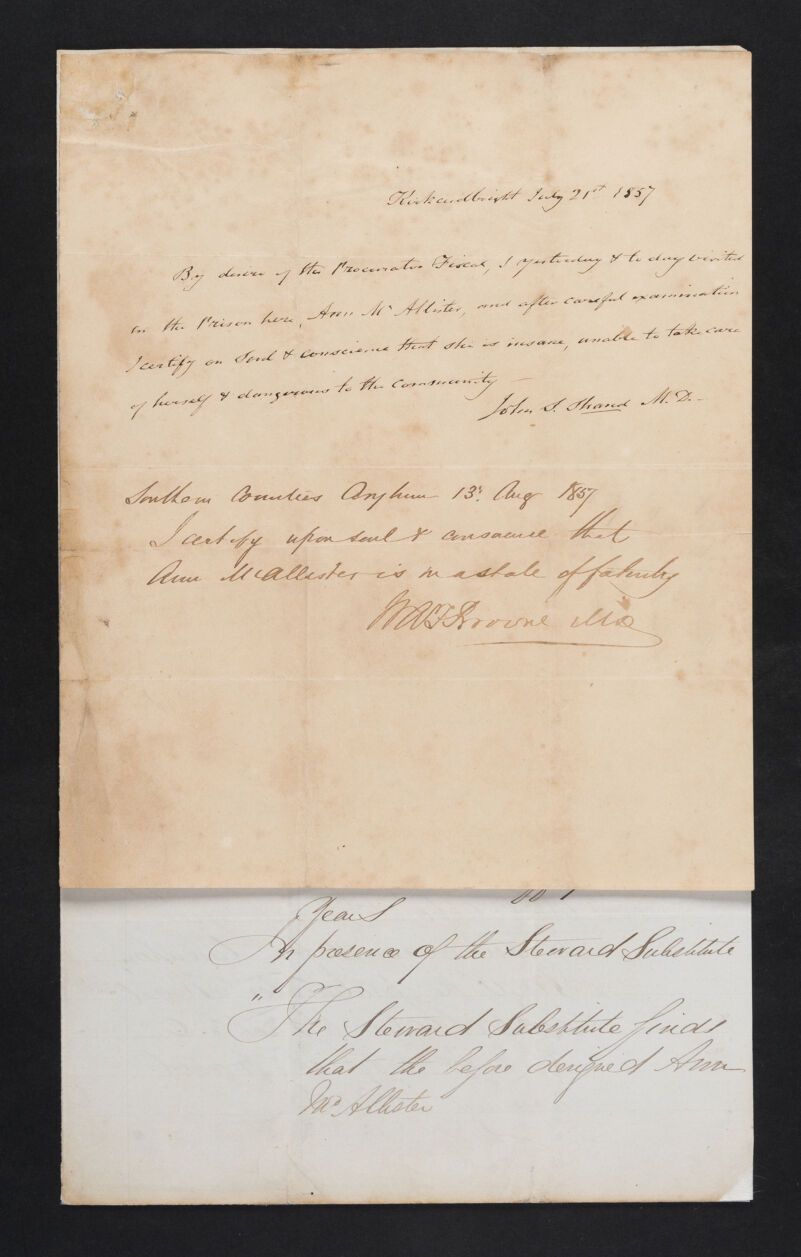 Kirkcudbright July 21st 1857
By desire of the Procurator Fiscal, I yesterday & to day visited
in the Prison here, Ann Mc Allister, and after careful examination
I certify on Soul & conscience that she is insane, unable to take care
of herself & dangerous to the community —
John S. Shand M.D.
Southern Counties Asylum 13th Aug 1857
I certify upon soul & conscience that
Ann McAllister is in a state of fatuity
W A F Browne M D
Years
In presence of the Steward Substitute
"The Steward Substitute finds
that the before designed Ann
Mc Allister